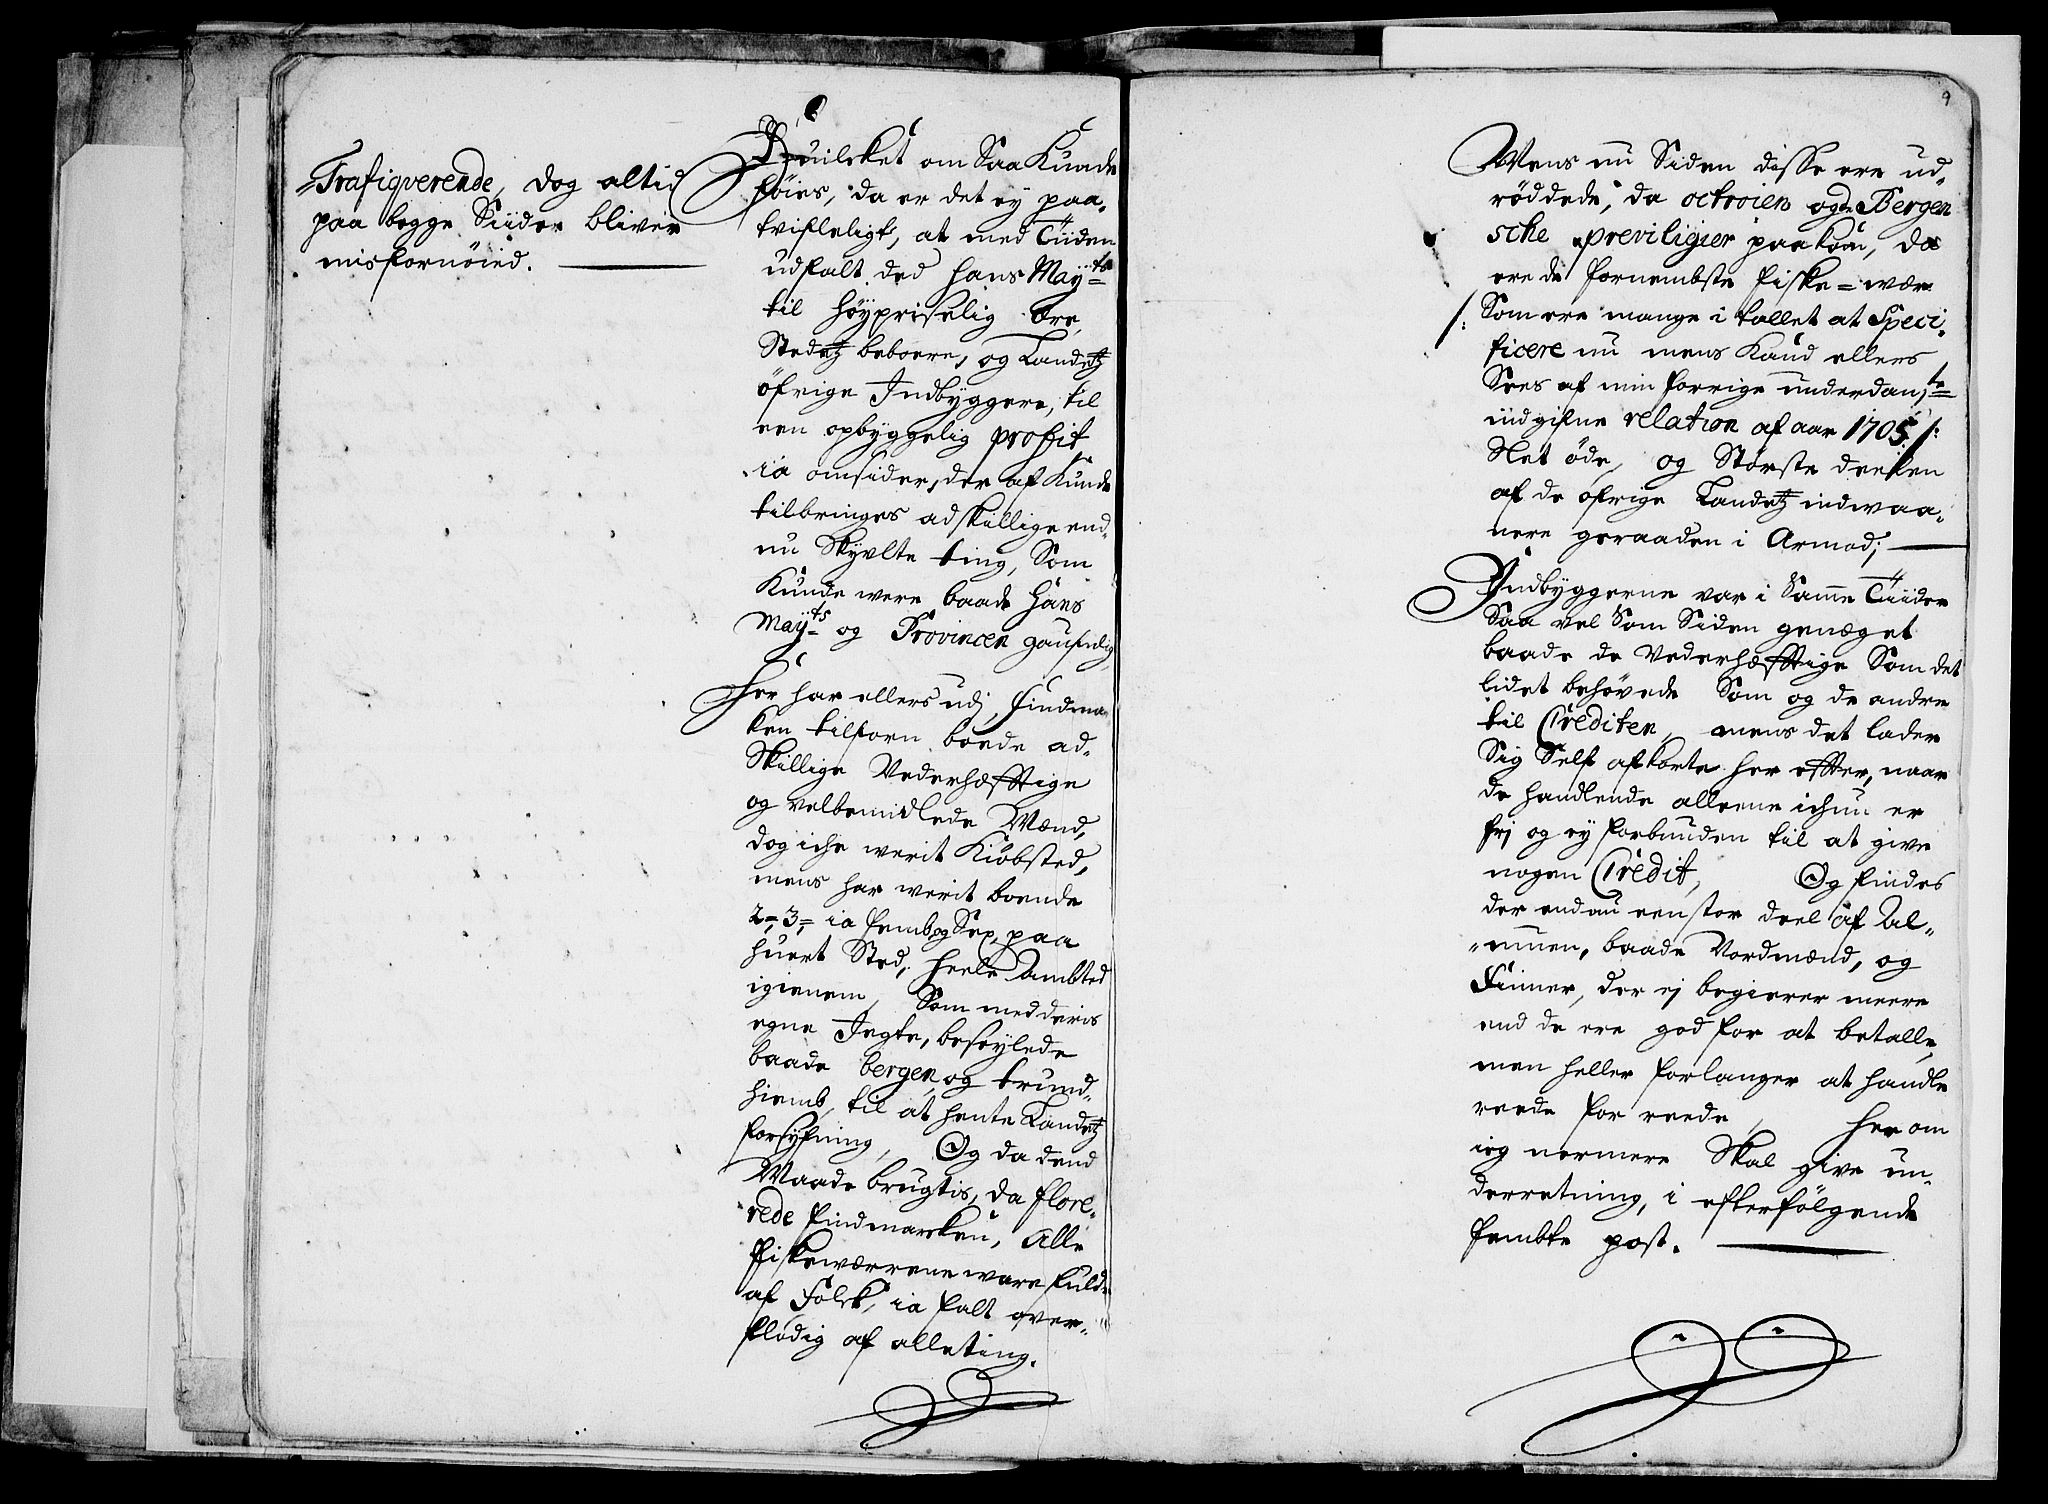 Trafiqverende, dog altid
paa begge Siider bliver
misfornöied.
Huilcket om Saa Kunde
föies, da er det ej paa-
tvifleligt, at med Tiiden
udfalt ded Hans Maÿts
til höÿpriselig Ære,
Stedetz beboere, og Landetz
öfrige Indbÿggere, til
een opbÿggelig profit,
ia omsider, der af Kunde
tilbringes adskillige end-
nu Skÿvlte ting, Som
Kunde were baade Hans
Maÿts og Provincen gaufnlig
Her har ellers udj Findmar
ken tilforn boede ad-
Skillige Vederhæfftige
og velbemidlede Mænd,
dog iche werit Kiöbsted,
mens har werit boende
2, 3, ia femb og Sex, paa
huert Sted, heele Ambted
igienem, Som med deris
egne Jegte, beseÿlede
baade bergen og trund-
hiemb, til at hente Landetz
forsÿfning, Og da dend
Maade brugtis, da flore-
rede Findmarcken, Alle
Fiskewærrene ware fulde
af Folck, ia falt over-
flödig af alleting.
9
Mens nu Siden disse ere ud-
röddede, da octroien og de Bergen
sche previligier paakom, da
ere de fornembste fiske=wær
/: Som ere mange i tallet at Speci-
ficere nu mens Kand ellers
Sees af min forrige underdan:ste
udgifne relation af aar 1705 :/
Slet öde, og Störste deelen
af de öfrige Landetz indwaa-
nere geraaden i Armod;
Indbÿggerne var i Samme Tiider
Saa vel Som Siden genæget
baade de Vederhæfftige Som det
lidet behövede Som og de andre
til Crediten, mens det lader
Sig Self afkorte her effter, naar
de handlende alleene ichun er
frj og ej forbunden til at give
nogen Credit, Og findes
der endnu een stor deel af Al-
muen, baade Nordmænd, og
Finner, der ej begierer meere
end de ere god for at betalle,
men heller forlanger at handle
reede for reede, her om
ieg nermere Skal give un-
derretning, i efterfölgende
fembte post.